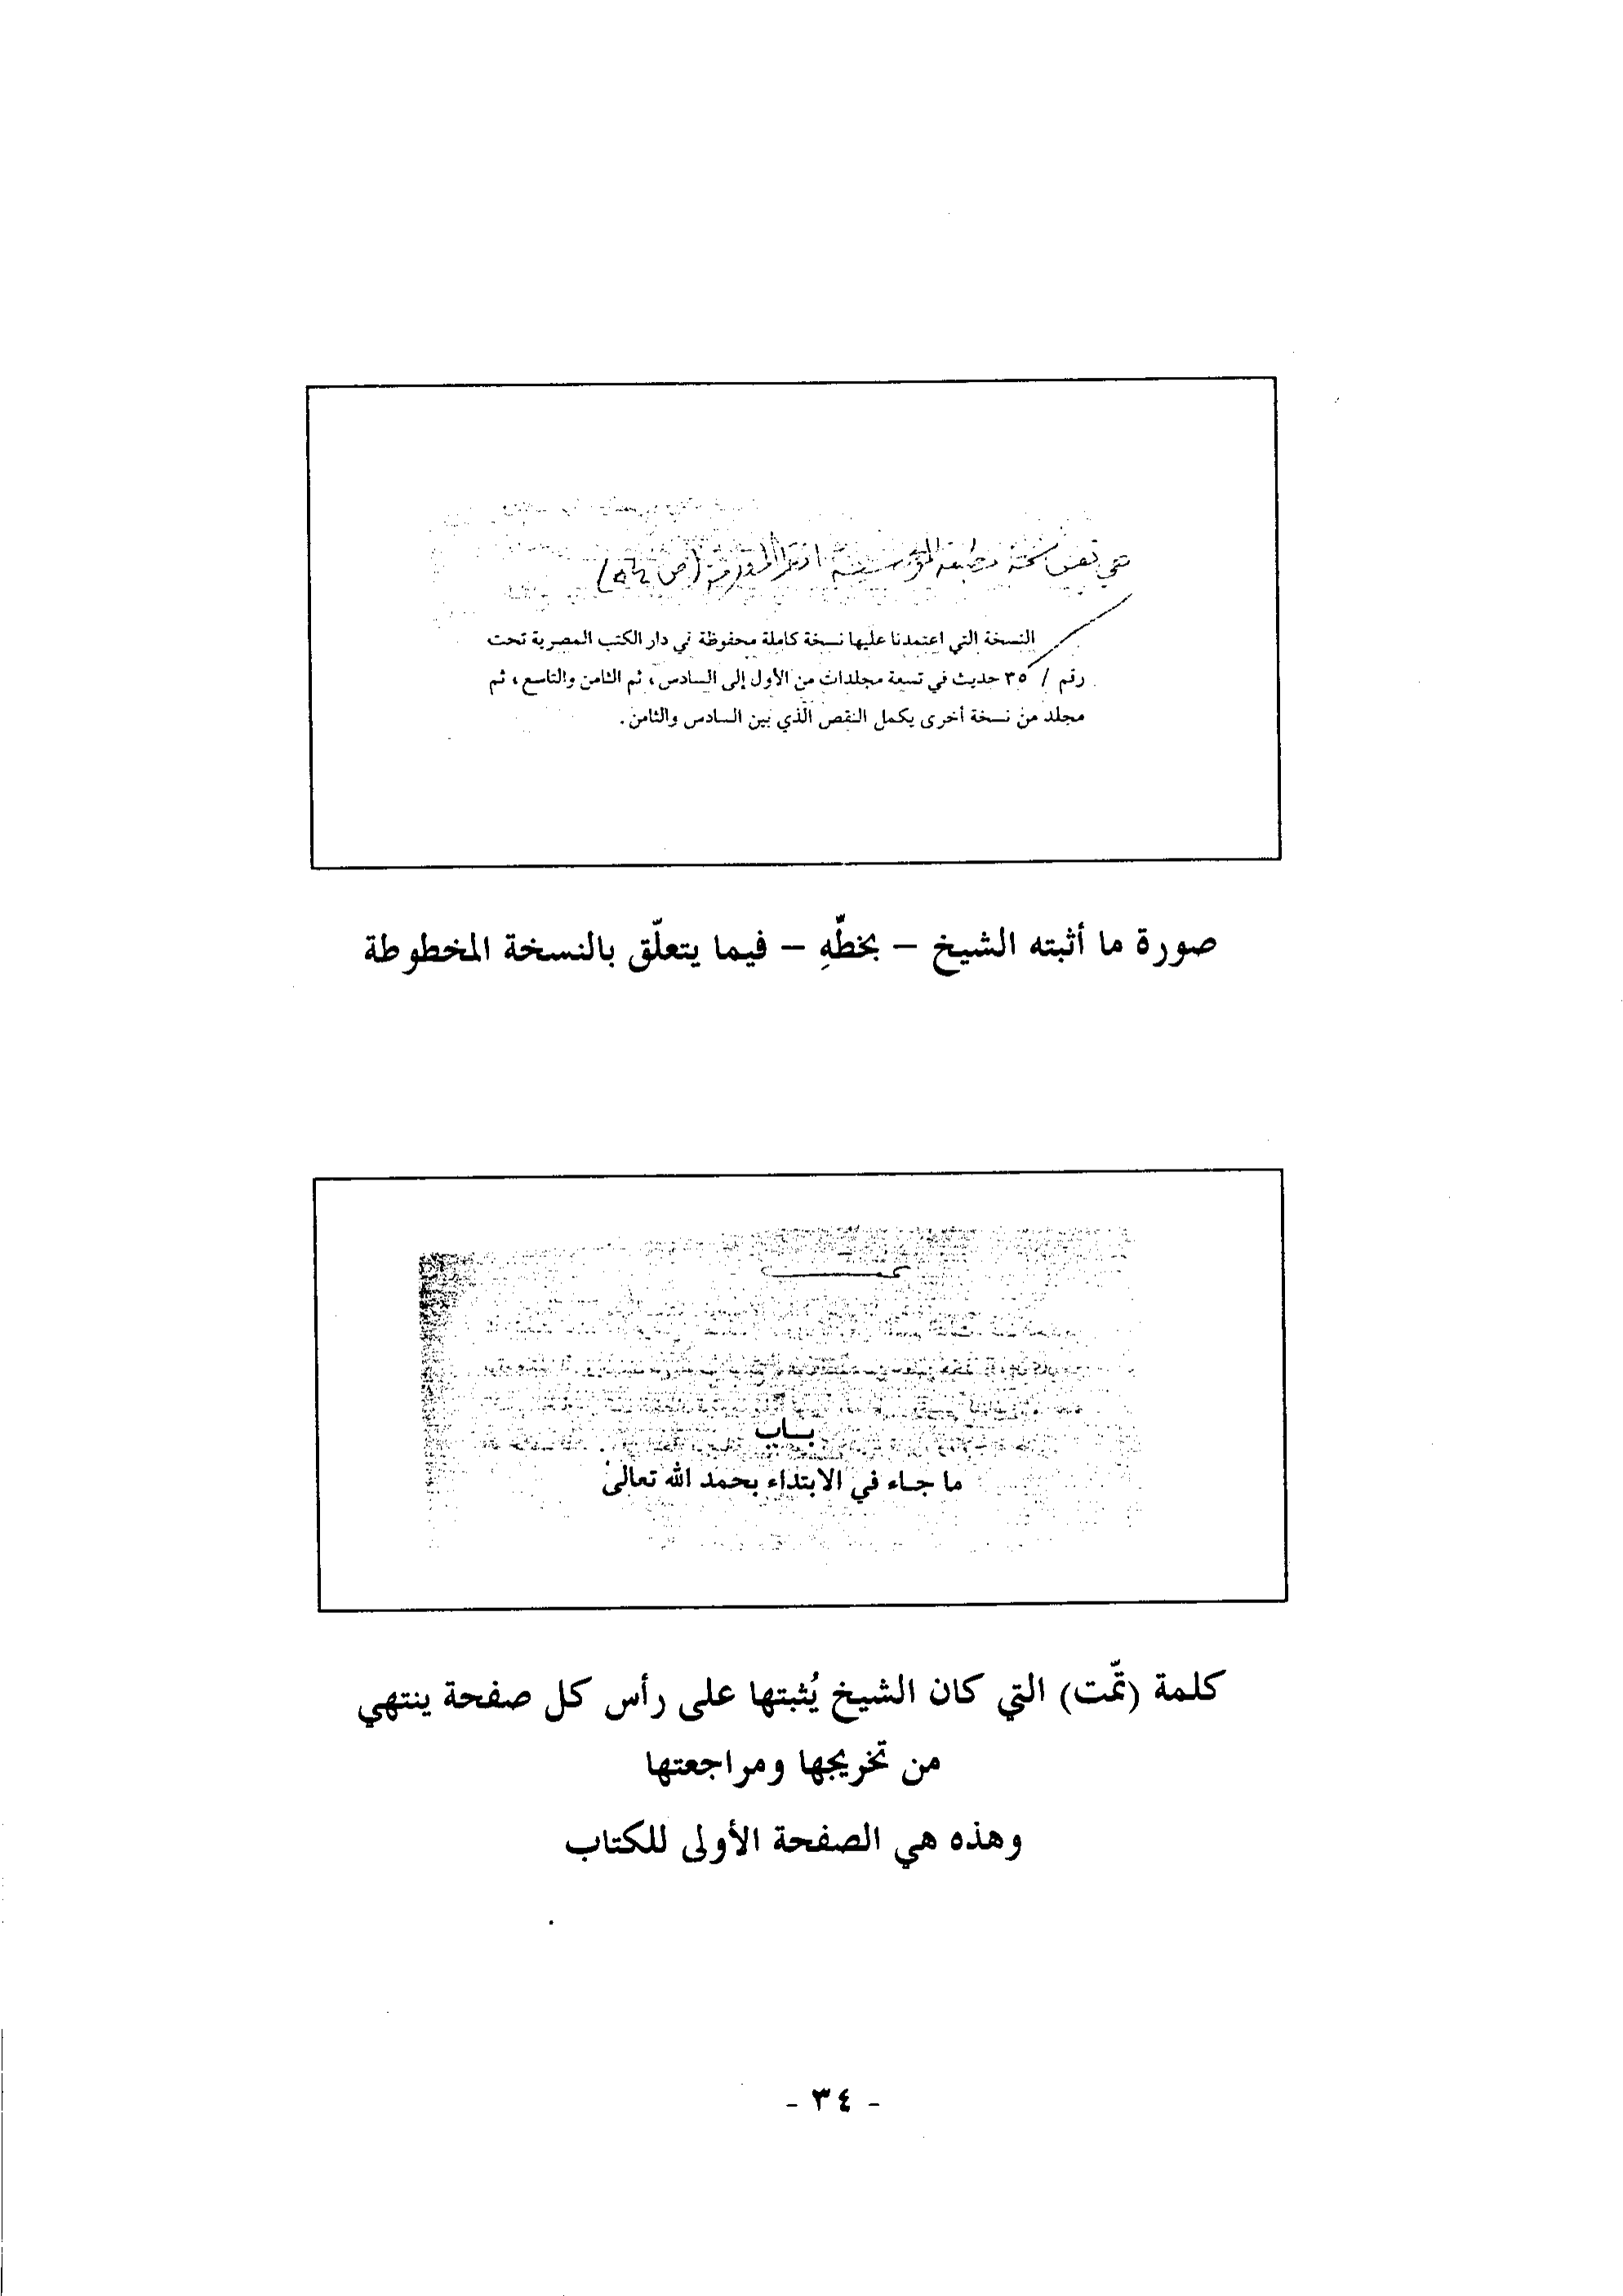 هي نفس نسخة مطبعة المؤسسة انظر المقدمة (ص ٥٤)
النسخة التي اعتمدنا عليها نسخة كاملة محفوظة في دار الكتب المصرية تحت
رقم / ٣٥ حديث في تسعة مجلدات من الأول إلى السادس، ثم الثامن والتاسع، ثم
مجلد من نسخة أخرى يكمل النقص الذي بين السادس والثامن.
صورة ما أثبته الشيخ – بخطّهِ – فيما يتعلّق بالنسخة المخطوطة
تمت
بـاب
ما جـاء في الابتداء بحمد الله تعالىٰ
كلمة (تمّت) التي كان الشيخ يُثبتها على رأس كل صفحة ينتهي
من تخريجها ومراجعتها
وهذه هي الصفحة الأولى للكتاب
- ٣٤ -